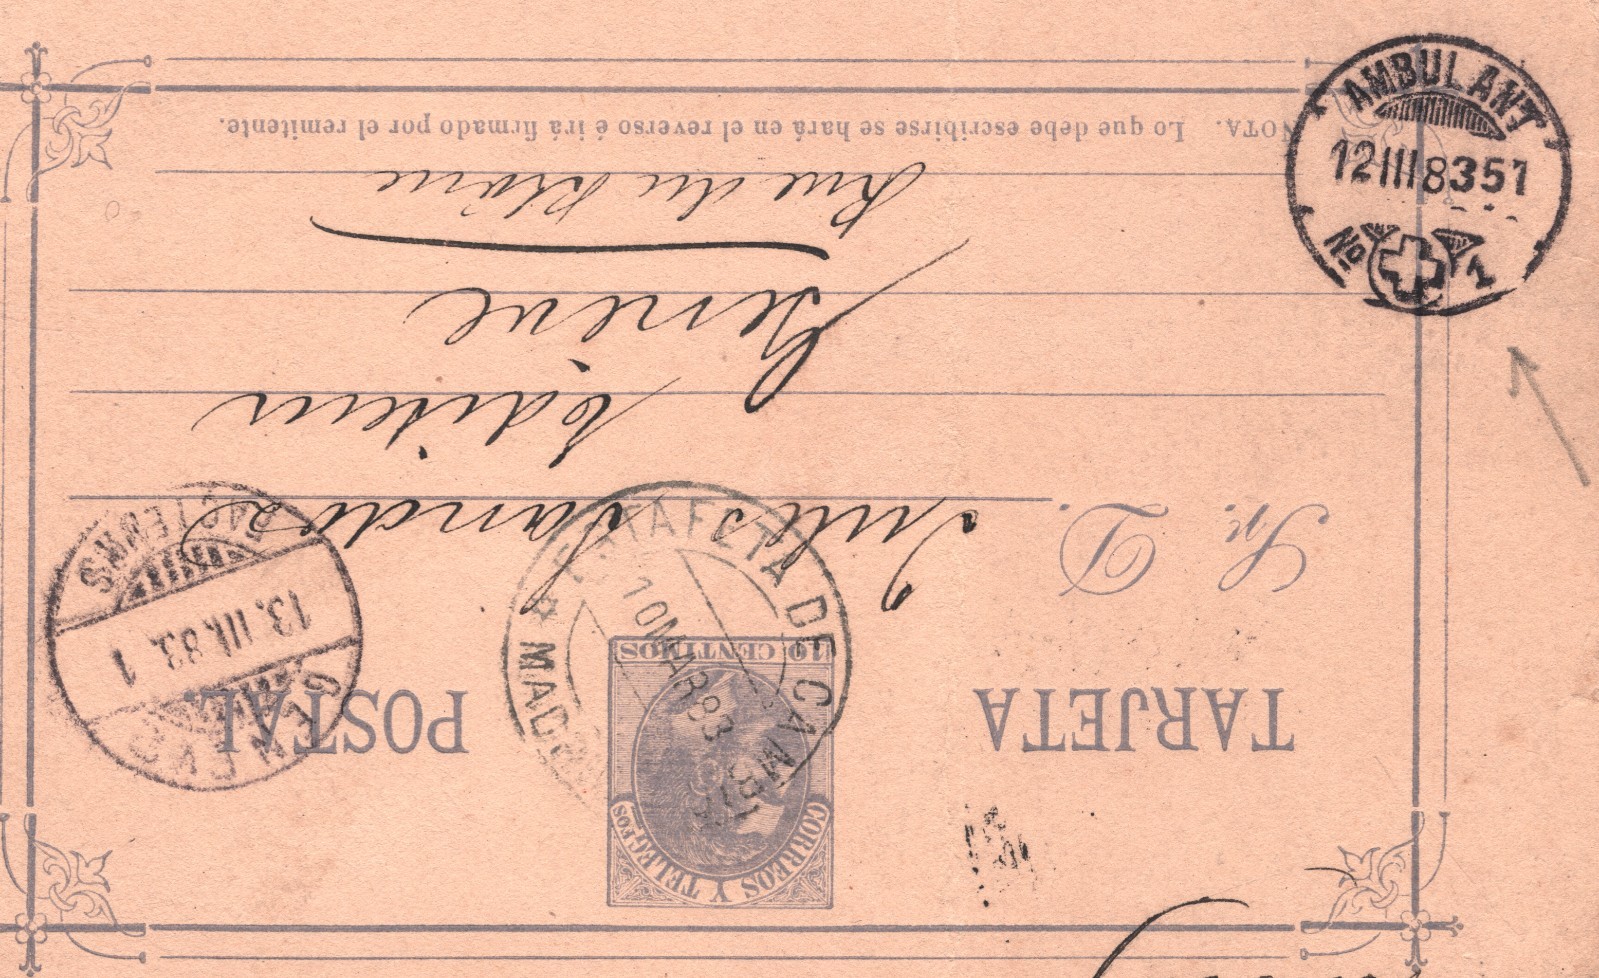 TARJETA POSTAL.
CORREOS Y TELEGFOS
10 CENTIMOS
ESTAFETA DE CAMBIO
10 MAR 83
MADRID
Sr. D. Jules Sandoz
Editeur
Genève
Rue du Rhône
NOTA. Lo que debe escribirse se hará en el reverso é irá firmado por el remitente.
GENEVE
13. III. 83. 1
FACTEURS
AMBULANT
12 III 83 51
No 1